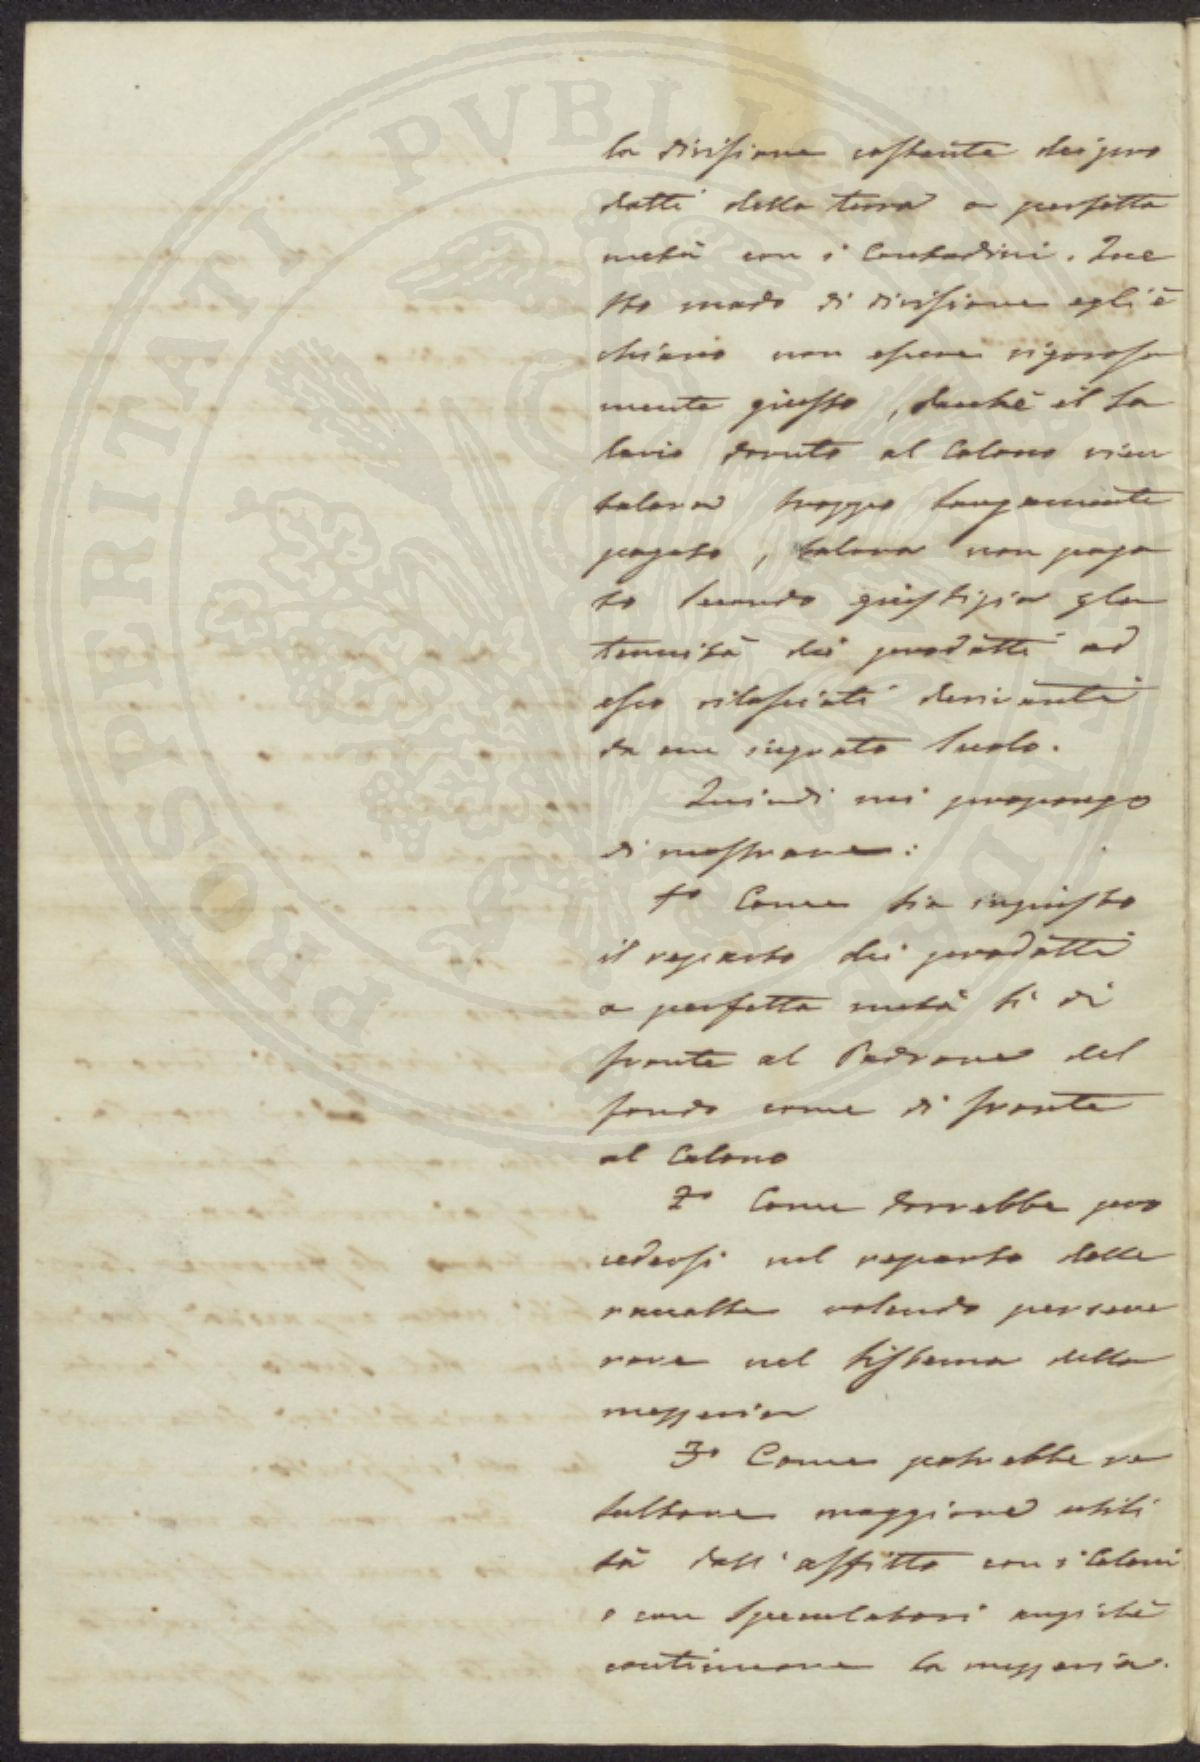 la divisione costante dei pro
dotti della terra a perfetta
metà con i Contadini. Que
sto modo di divisione egli è
chiaro non essere rigorosa
mente giusto, perchè il sa
lario dovuto al Colono vien
talora troppo largamente
pagato, talora non paga
to secondo giustizia per la
tenuità dei prodotti ad
esso rilasciati derivanti
da un ingrato suolo.
Quindi mi propongo
di mostrare:
1º Come sia ingiusto
il reparto dei prodotti
a perfetta metà sì di
fronte al Padrone del
fondo come di fronte
al Colono
2º Come dovrebbe pro
cedersi nel reparto delle
raccolte volendo perseve
rare nel sistema della
mezzeria
3º Come potrebbe re
sultare maggiore utili
tà dall'affitto con i Coloni
o con speculatori anzichè
continuare la mezzeria.
PROSPERITATI PUBLICAE